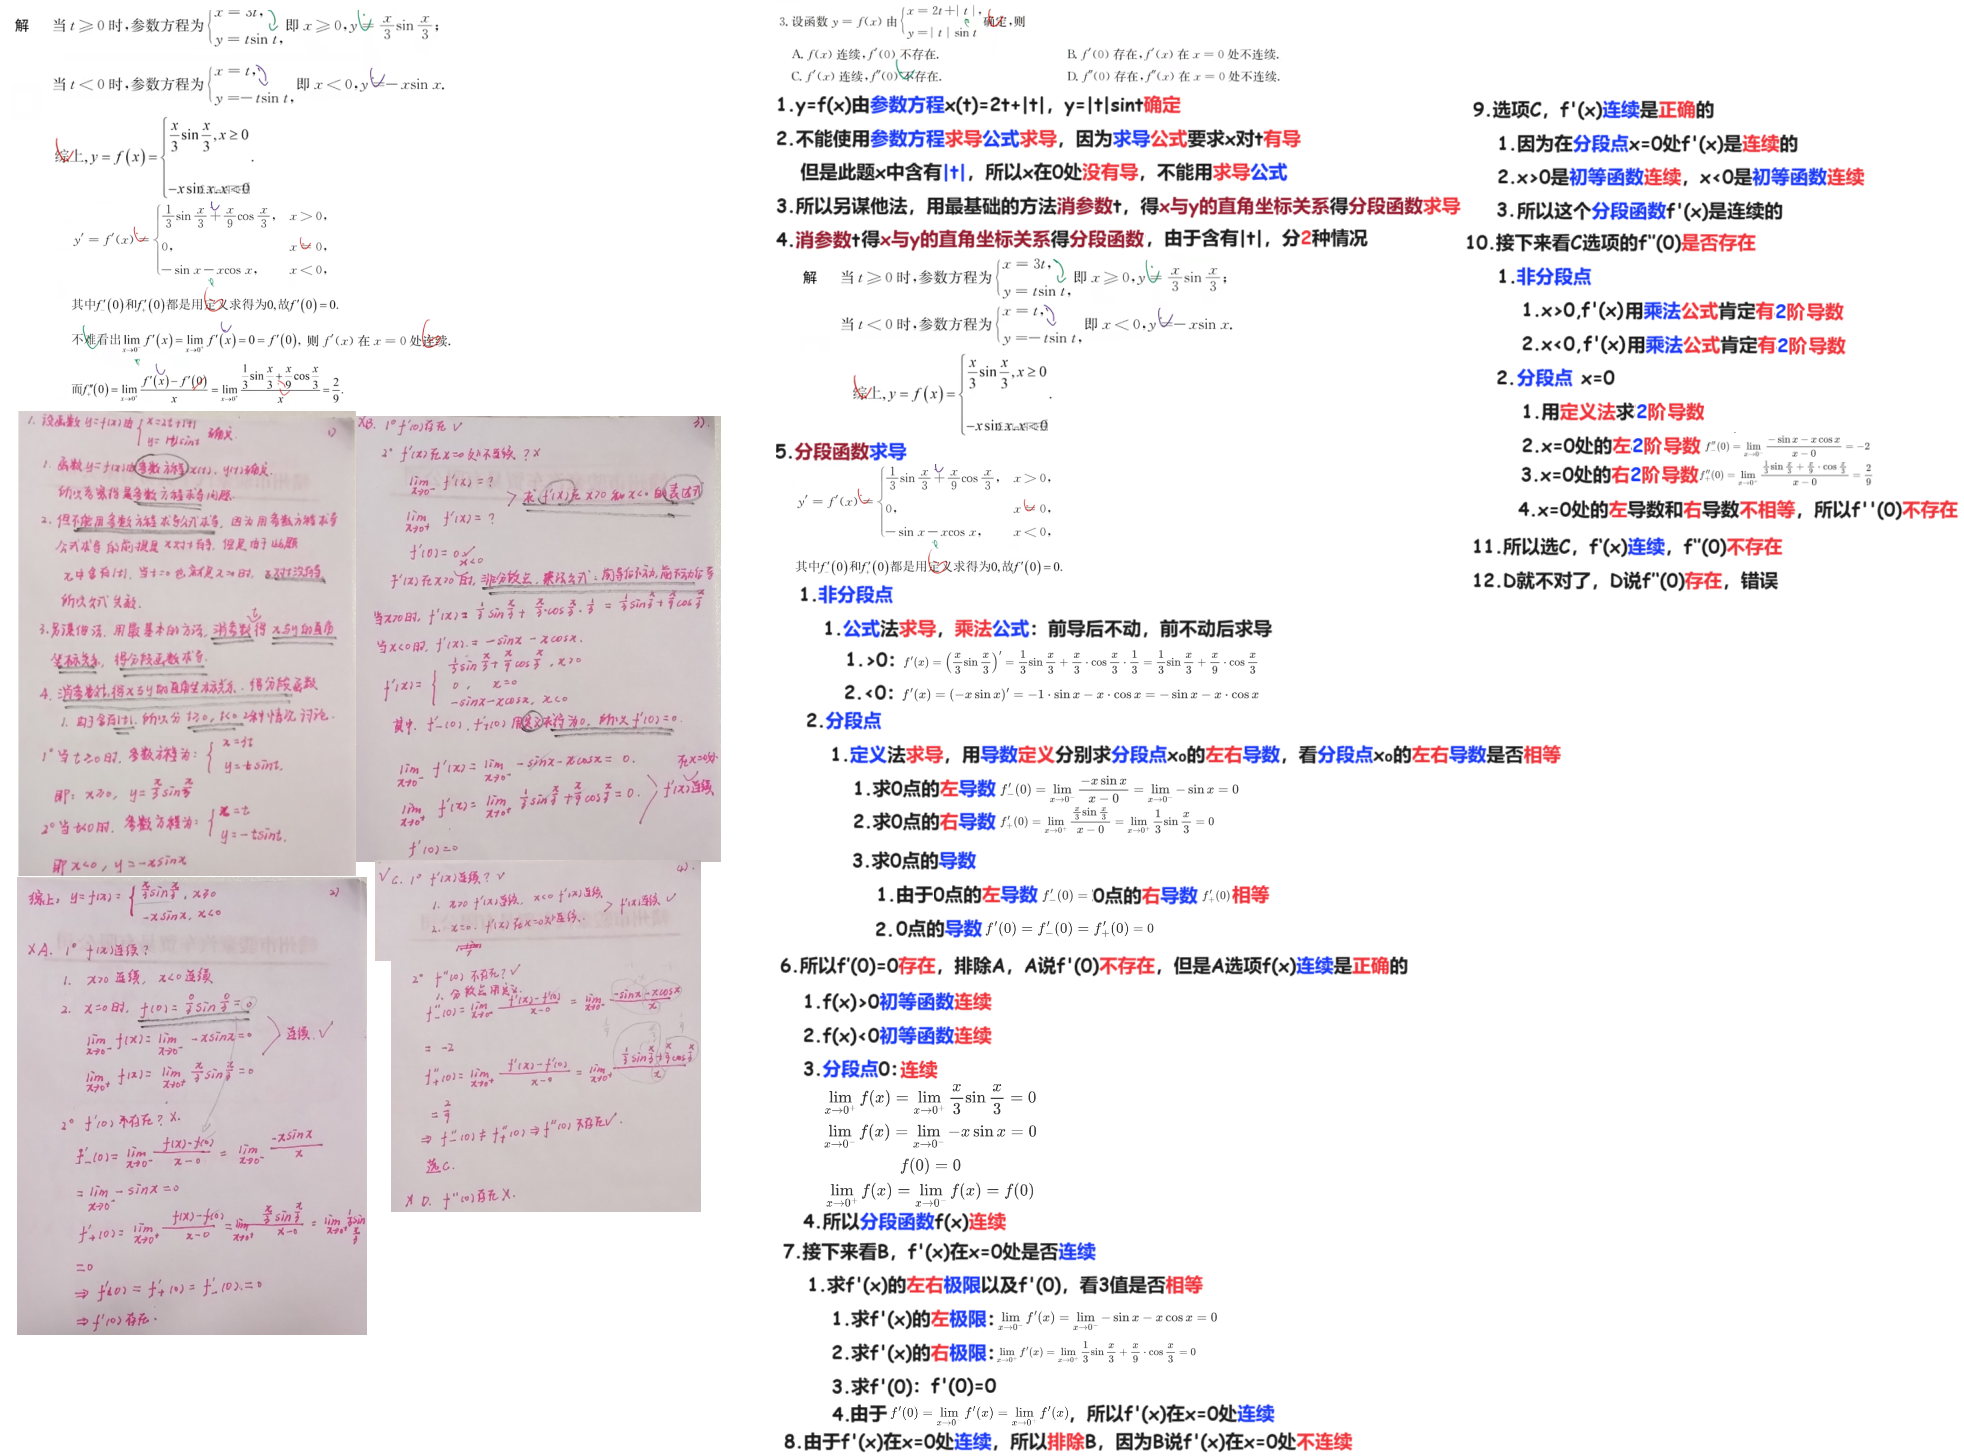 解 当 t ≥ 0 时,参数方程为 { x = 3t, y = tsin t, 即 x ≥ 0, y = x/3 sin x/3;
当 t < 0 时,参数方程为 { x = t, y = −tsin t, 即 x < 0, y = −xsin x.
综上, y = f(x) = { x/3 sin x/3, x ≥ 0 −x sin x, x < 0 .
y′ = f′(x) = { 1/3 sin x/3 + x/9 cos x/3, x > 0, 0, x = 0, −sin x − xcos x, x < 0,
其中f′₋(0)和f′₊(0)都是用定义求得为0,故f′(0) = 0.
不难看出 lim x→0⁻ f′(x) = lim x→0⁺ f′(x) = 0 = f′(0), 则 f′(x) 在 x = 0 处连续.
而f″₊(0) = lim x→0⁺ (f′(x) − f′(0))/x = lim x→0⁺ (1/3 sin x/3 + x/9 cos x/3)/x = 2/9.
1. 设函数 y=f(x)由 { x=2t+|t| y=|t|sint 确定. 1)
1. 函数y=f(x)由参数方程x(t), y(t)确定.
所以考察得是参数方程求导问题.
2. 但不能用参数方程求导公式求导, 因为用参数方程求导
公式求导的前提是x对t有导, 但是由于此题
x中含有|t|, 当t=0也就是x=0时, x对t没导
所以公式失效.
3. 另谋他法, 用最基本的方法, 消参数t得x与y的直角
坐标关系, 得分段函数求导.
4. 消参数t, 得x与y的直角坐标关系, 得分段函数
1. 由于含有|t|, 所以分t≥0, t<0 2种情况讨论.
1° 当t≥0时, 参数方程为: { x=3t y=tsint.
即: x≥0, y= x/3 sin x/3
2° 当t<0时, 参数方程为: { x=t y=-tsint.
即x<0, y=-xsinx
综上, y=f(x)= { x/3 sin x/3, x≥0 -xsinx, x<0 2)
X A. 1° f(x)连续?
1. x>0 连续, x<0 连续
2. x=0时, f(0)= 0/3 sin 0/3 =0
lim x→0⁻ f(x)= lim x→0⁻ -xsinx=0 连续.√
lim x→0⁺ f(x)= lim x→0⁺ x/3 sin x/3 =0
2° f′(0)不存在? X.
f′₋(0)= lim x→0⁻ (f(x)-f(0))/(x-0) = lim x→0⁻ -xsinx/x
= lim x→0⁻ -sinx =0
f′₊(0)= lim x→0⁺ (f(x)-f(0))/(x-0) = lim x→0⁺ (x/3 sin x/3)/(x-0) = lim x→0⁺ 1/3 sin x/3
=0
⇒ f′(0) = f′₊(0) = f′₋(0) =0
⇒ f′(0)存在.
X B. 1° f′(0)存在 √ 3).
2° f′(x)在x=0处不连续? X
lim x→0⁻ f′(x)=?
> 求f′(x)在x>0和x<0的表达式
lim x→0⁺ f′(x)=?
f′(0)=0 √
f′(x)在x>0 x<0时, 非分段点, 乘法公式: 前导后不动, 前不动后导
当x>0时, f′(x)= 1/3 sin x/3 + x/3·cos x/3 · 1/3 = 1/3 sin x/3 + x/9 cos x/3
当x<0时, f′(x)= -sinx - xcosx.
f′(x)= { 1/3 sin x/3 + x/9 cos x/3, x>0 0, x=0 -sinx-xcosx, x<0
其中, f′₋(0), f′₊(0)用定义求得为0, 所以f′(0)=0.
lim x→0⁻ f′(x)= lim x→0⁻ -sinx-xcosx = 0. 在x=0处
lim x→0⁺ f′(x)= lim x→0⁺ 1/3 sin x/3 + x/9 cos x/3 = 0. f′(x)连续
f′(0)=0
√ C. 1° f′(x)连续? √ 4).
1. x>0 f′(x)连续, x<0 f′(x)连续.
> f′(x)连续 √
2. x=0. f′(x)在x=0处连续.
2° f″(0)不存在? √
1. 分段点用定义.
f″₋(0)= lim x→0⁻ (f′(x)-f′(0))/(x-0) = lim x→0⁻ (-sinx-xcosx)/x
= -2
f″₊(0)= lim x→0⁺ (f′(x)-f′(0))/(x-0) = lim x→0⁺ (1/3 sin x/3 + x/9 cos x/3)/x
= 2/9
⇒ f″₋(0) ≠ f″₊(0) ⇒ f″(0)不存在√.
选C.
X D. f″(0)存在 X.
3. 设函数 y = f(x) 由 { x = 2t+|t|, y = |t| sin t 确定,则
A. f(x) 连续, f′(0) 不存在. B. f′(0) 存在, f′(x) 在 x = 0 处不连续.
C. f′(x) 连续, f″(0) 不存在. D. f″(0) 存在, f″(x) 在 x = 0 处不连续.
1.y=f(x)由参数方程x(t)=2t+|t|，y=|t|sint确定
2.不能使用参数方程求导公式求导，因为求导公式要求x对t有导
但是此题x中含有|t|，所以x在0处没有导，不能用求导公式
3.所以另谋他法，用最基础的方法消参数t，得x与y的直角坐标关系得分段函数求导
4.消参数t得x与y的直角坐标关系得分段函数，由于含有|t|，分2种情况
解 当 t ≥ 0 时,参数方程为 { x = 3t, y = tsin t, 即 x ≥ 0, y = x/3 sin x/3;
当 t < 0 时,参数方程为 { x = t, y = −tsin t, 即 x < 0, y = −xsin x.
综上, y = f(x) = { x/3 sin x/3, x ≥ 0 −x sin x, x < 0 .
5.分段函数求导
y′ = f′(x) = { 1/3 sin x/3 + x/9 cos x/3, x > 0, 0, x = 0, −sin x − xcos x, x < 0,
其中f′₋(0)和f′₊(0)都是用定义求得为0,故f′(0) = 0.
1.非分段点
1.公式法求导，乘法公式：前导后不动，前不动后求导
1.>0: f′(x) = (x/3 sin x/3)′ = 1/3 sin x/3 + x/3 · cos x/3 · 1/3 = 1/3 sin x/3 + x/9 · cos x/3
2.<0: f′(x) = (−x sin x)′ = −1 · sin x − x · cos x = − sin x − x · cos x
2.分段点
1.定义法求导，用导数定义分别求分段点x₀的左右导数，看分段点x₀的左右导数是否相等
1.求0点的左导数 f′₋(0) = lim x→0⁻ (−x sin x)/(x − 0) = lim x→0⁻ − sin x = 0
2.求0点的右导数 f′₊(0) = lim x→0⁺ (x/3 sin x/3)/(x − 0) = lim x→0⁺ 1/3 sin x/3 = 0
3.求0点的导数
1.由于0点的左导数 f′₋(0) = 0点的右导数 f′₊(0) 相等
2.0点的导数 f′(0) = f′₋(0) = f′₊(0) = 0
6.所以f'(0)=0存在，排除A，A说f'(0)不存在，但是A选项f(x)连续是正确的
1.f(x)>0初等函数连续
2.f(x)<0初等函数连续
3.分段点0：连续
lim x→0⁺ f(x) = lim x→0⁺ x/3 sin x/3 = 0
lim x→0⁻ f(x) = lim x→0⁻ −x sin x = 0
f(0) = 0
lim x→0⁺ f(x) = lim x→0⁻ f(x) = f(0)
4.所以分段函数f(x)连续
7.接下来看B，f'(x)在x=0处是否连续
1.求f'(x)的左右极限以及f'(0)，看3值是否相等
1.求f'(x)的左极限: lim x→0⁻ f′(x) = lim x→0⁻ − sin x − x cos x = 0
2.求f'(x)的右极限: lim x→0⁺ f′(x) = lim x→0⁺ 1/3 sin x/3 + x/9 · cos x/3 = 0
3.求f'(0)：f'(0)=0
4.由于 f′(0) = lim x→0⁻ f′(x) = lim x→0⁺ f′(x)，所以f'(x)在x=0处连续
8.由于f'(x)在x=0处连续，所以排除B，因为B说f'(x)在x=0处不连续
9.选项C，f'(x)连续是正确的
1.因为在分段点x=0处f'(x)是连续的
2.x>0是初等函数连续，x<0是初等函数连续
3.所以这个分段函数f'(x)是连续的
10.接下来看C选项的f''(0)是否存在
1.非分段点
1.x>0,f'(x)用乘法公式肯定有2阶导数
2.x<0,f'(x)用乘法公式肯定有2阶导数
2.分段点 x=0
1.用定义法求2阶导数
2.x=0处的左2阶导数 f″₋(0) = lim x→0⁻ (− sin x − x cos x)/(x − 0) = −2
3.x=0处的右2阶导数 f″₊(0) = lim x→0⁺ (1/3 sin x/3 + x/9 · cos x/3)/(x − 0) = 2/9
4.x=0处的左导数和右导数不相等，所以f''(0)不存在
11.所以选C，f'(x)连续，f''(0)不存在
12.D就不对了，D说f''(0)存在，错误